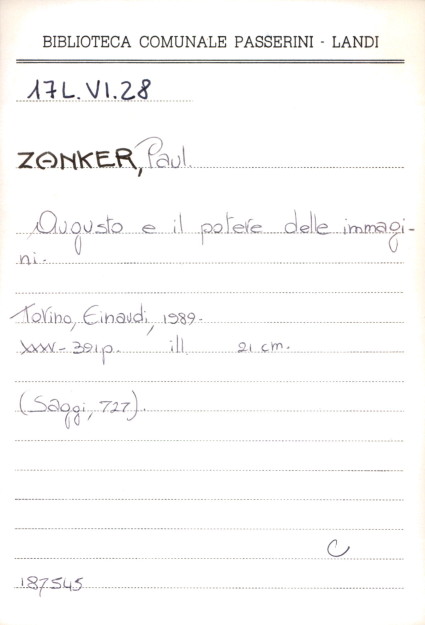 BIBLIOTECA COMUNALE PASSERINI - LANDI
17L.VI.28
ZANKER, Paul
Augusto e il potere delle immagi-
ni.
Torino, Einaudi, 1989.
XXXV-391p. ill 21 cm.
(Saggi, 727).
C
187545